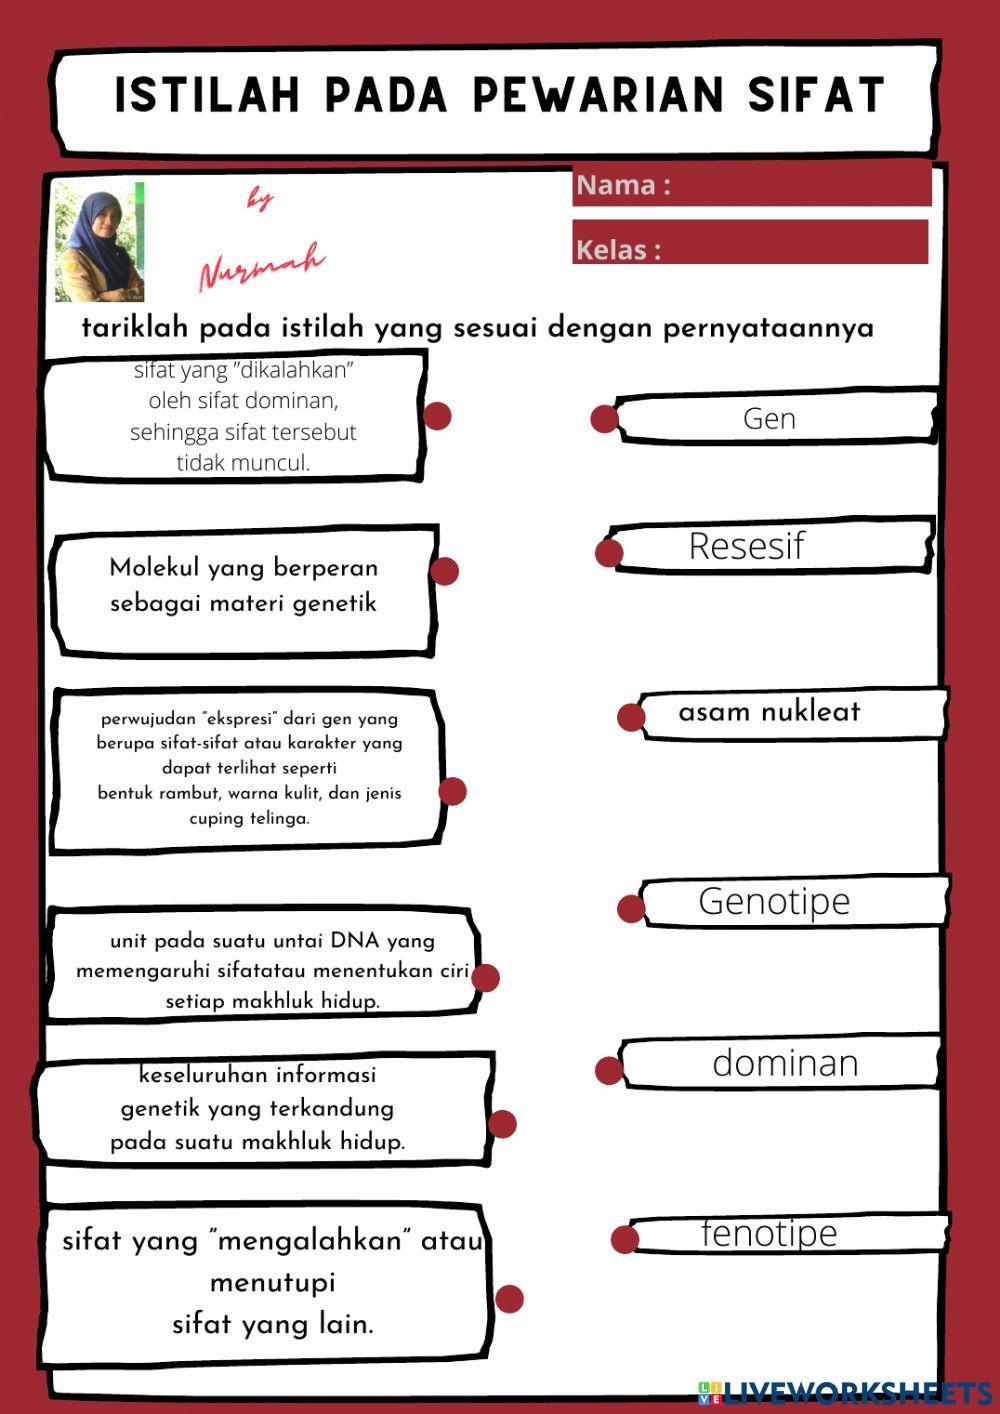 ISTILAH PADA PEWARIAN SIFAT
by
Nurmah
Nama :
Kelas :
tariklah pada istilah yang sesuai dengan pernyataannya
sifat yang "dikalahkan"
oleh sifat dominan,
sehingga sifat tersebut
tidak muncul.
Gen
Molekul yang berperan
sebagai materi genetik
Resesif
perwujudan "ekspresi" dari gen yang
berupa sifat-sifat atau karakter yang
dapat terlihat seperti
bentuk rambut, warna kulit, dan jenis
cuping telinga.
asam nukleat
unit pada suatu untai DNA yang
memengaruhi sifatatau menentukan ciri
setiap makhluk hidup.
Genotipe
keseluruhan informasi
genetik yang terkandung
pada suatu makhluk hidup.
dominan
sifat yang "mengalahkan" atau
menutupi
sifat yang lain.
fenotipe
LIVE LIVEWORKSHEETS